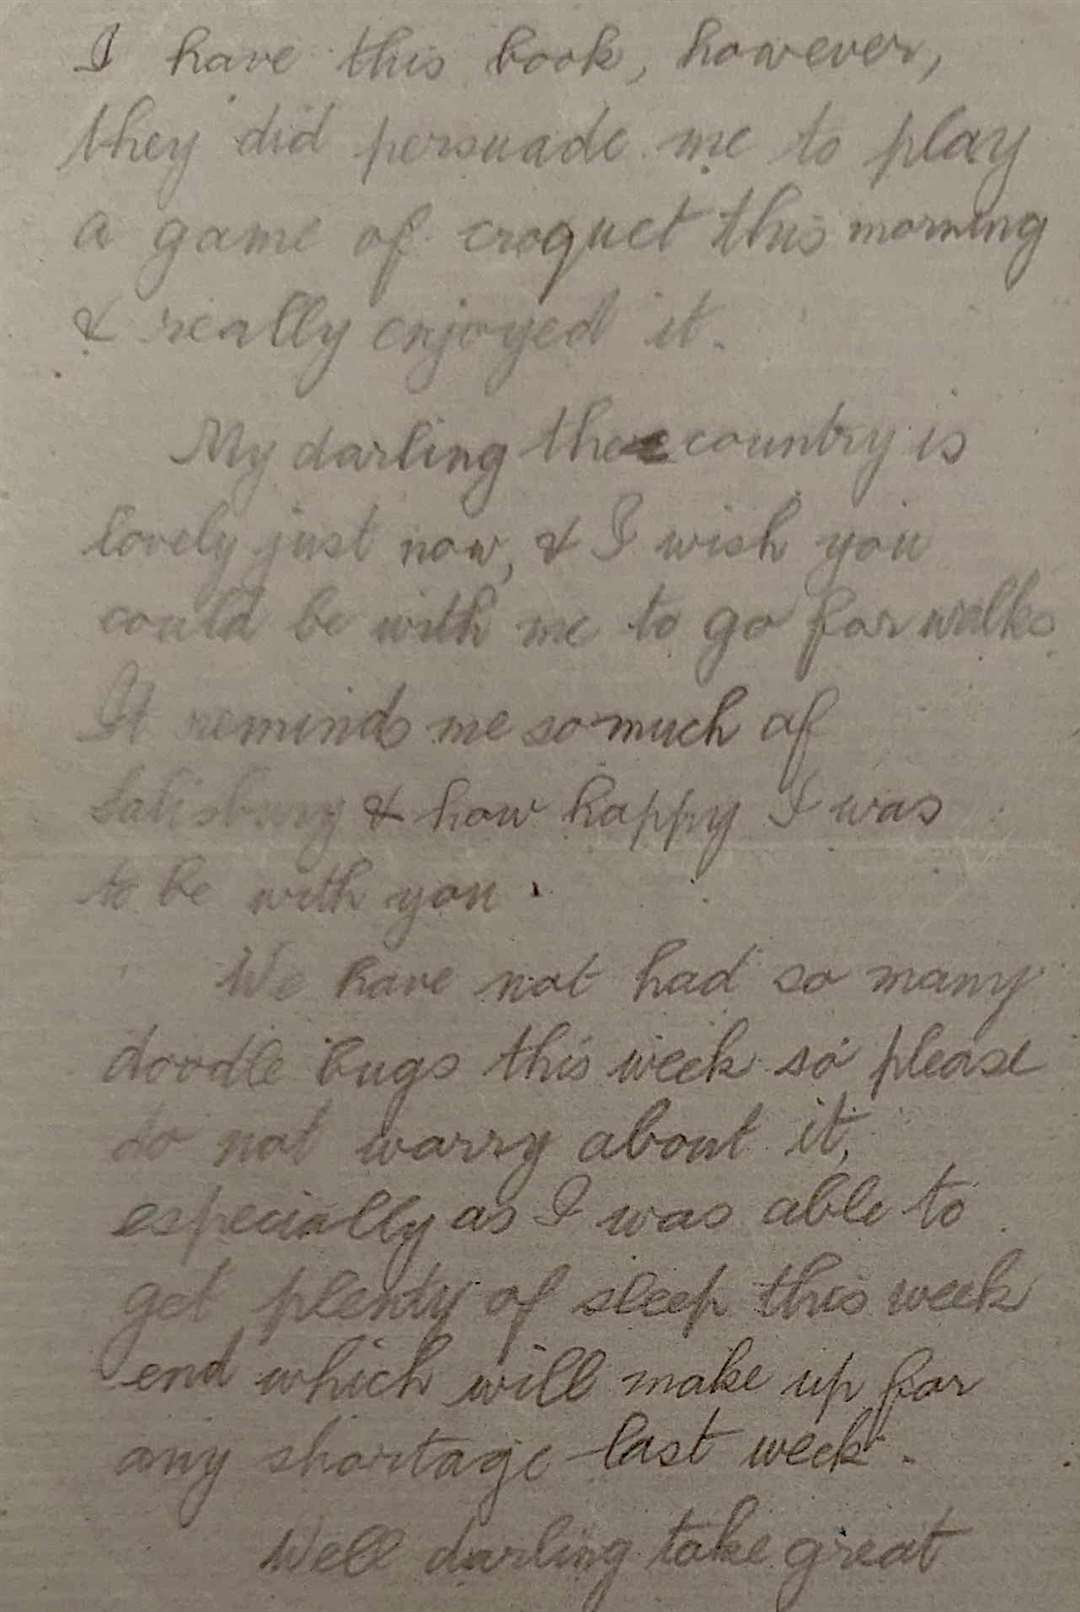 I have this book, however,
they did persuade me to play
a game of croquet this morning
& really enjoyed it.
My darling the country is
lovely just now, & I wish you
could be with me to go for walks.
It reminds me so much of
Salisbury & how happy I was
to be with you.
We have not had so many
doodle bugs this week so please
do not worry about it,
especially as I was able to
get plenty of sleep this week
end which will make up for
any shortage last week.
Well darling take great